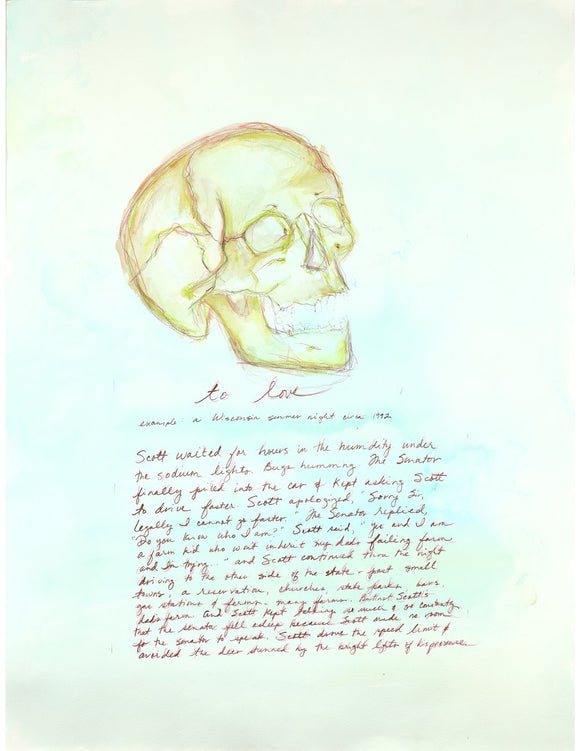 to love
example: a Wisconsin summer night circa 1992
Scott waited for hours in the humidity under
the sodium lights. Bugs humming. The Senator
finally piled into the car & kept asking Scott
to drive faster. Scott apologized, "Sorry Sir,
legally I cannot go faster." The Senator replied,
"Do you know who I am?" Scott said, "yes and I am
a farm kid who wont inherit my dads failing farm
and I'm trying..." and Scott continued thru the night
driving to the other side of the state - past small
towns, a reservation, churches, state parks, bars,
gas stations & farms - many farms. But not Scott's
dads farm. And Scott kept talking so much & so constantly
that the senator fell asleep because Scott made no room
for the senator to speak. Scott drove the speed limit &
avoided the deer stunned by the bright lights of his